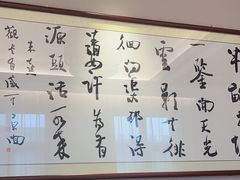 半畝方塘
一鑒開天光
雲影共徘
徊問渠那得
清如許為有
源頭活水來
朱熹
觀書有感